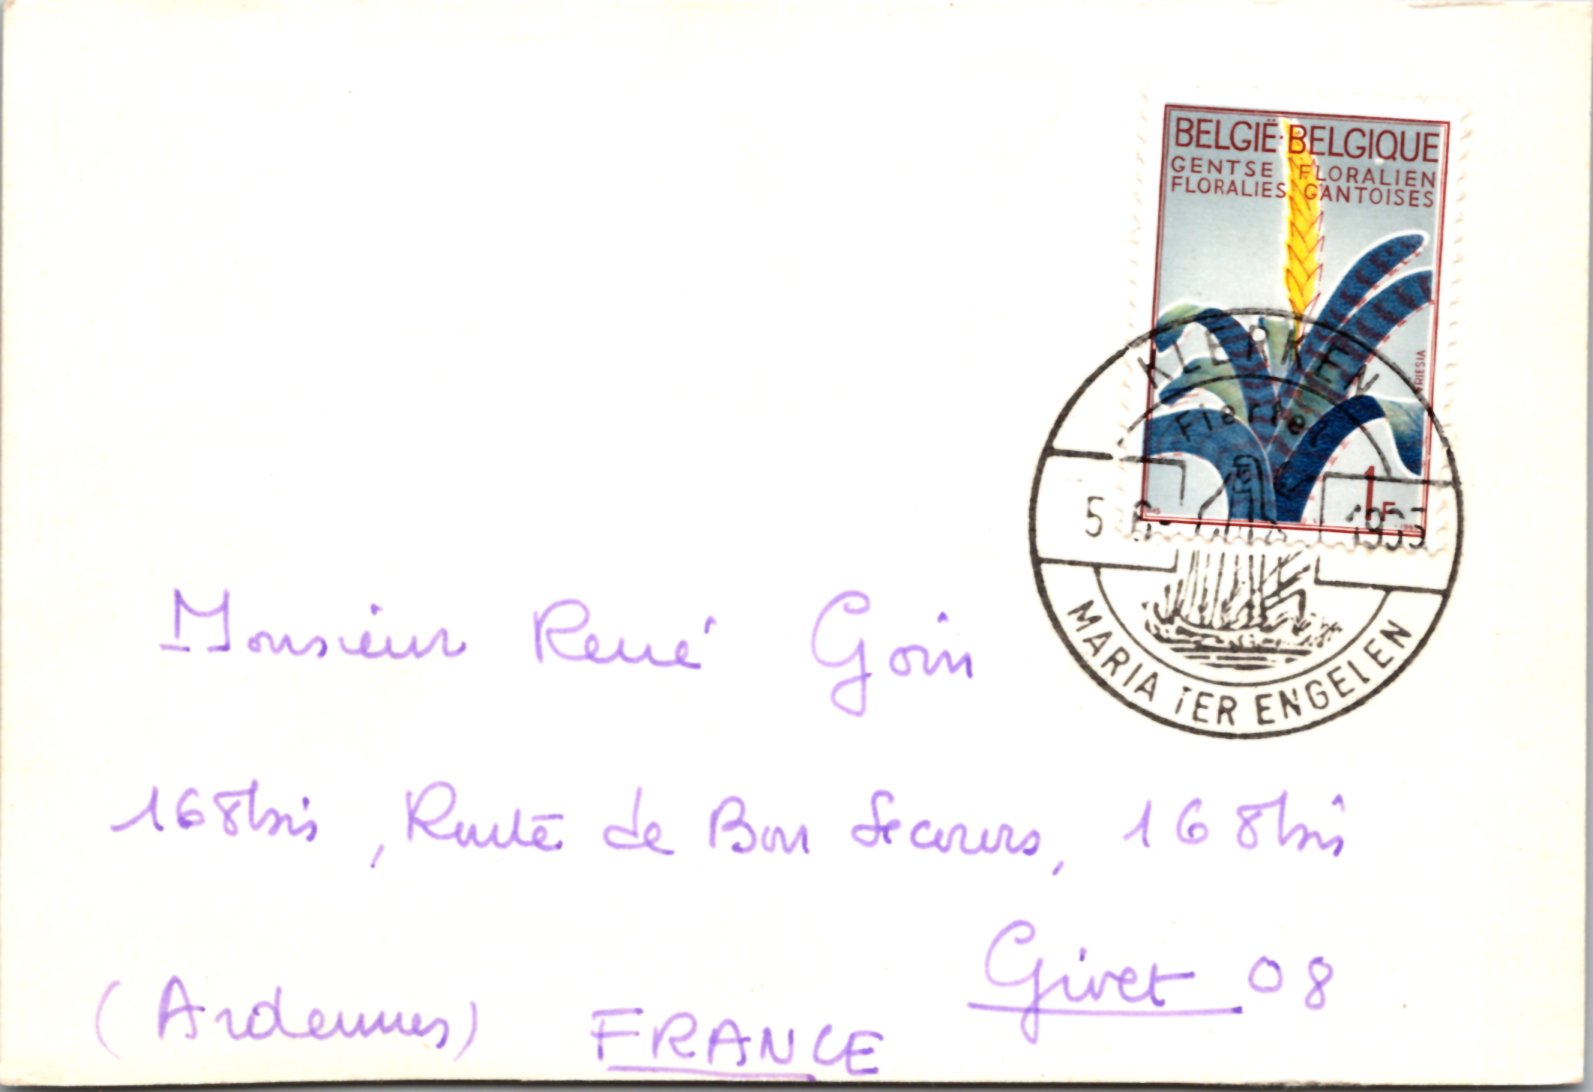 BELGIË·BELGIQUE
GENTSE FLORALIEN
FLORALIES GANTOISES
VRIESIA
1F
KLERKEN
5 6
MARIA TER ENGELEN
Monsieur René Goin
168bis, Route de Bon Secours, 168bis
Givet 08
(Ardennes) FRANCE